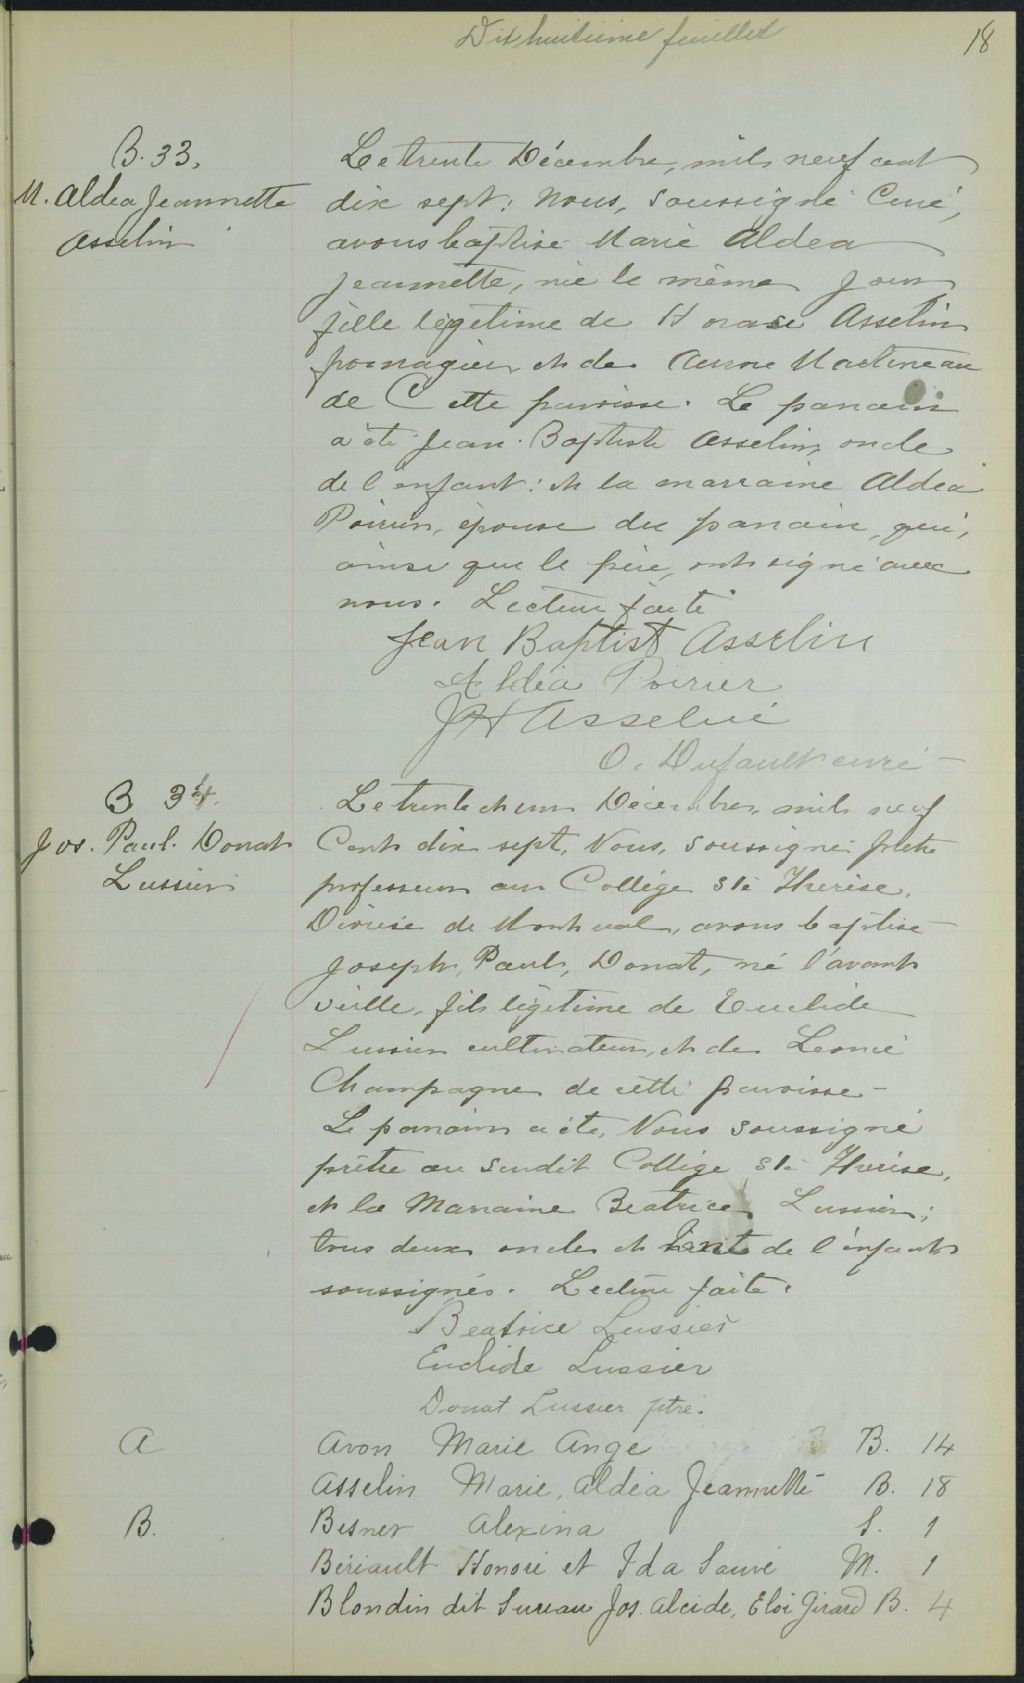 Dixhuitième feuillet 18
B. 33.
M. Aldea Jeannette
Asselin
Le trente Décembre, mil neuf cent
dix sept: Nous, soussigné Curé,
avons baptisé Marie Aldea
Jeannette, née le même jour
fille légitime de Horace Asselin
fromagier et de Aurore Martineau
de Cette paroisse. Le parrain
a été Jean-Baptiste Asselin, oncle
de l'enfant: et la marraine Aldea
Poirier, épouse du parrain, qui,
ainsi que le père, ont signé avec
nous. Lecture faite
Jean Baptist Asselin
Aldéa Poirier
JH Asselin
O. Dufault curé
B 34.
Jos. Paul. Donat
Lussier
Le trente et un Décembre, mil neuf
Cent dix sept, Nous, soussigné prêtre
professeur au Collège Ste Therèse,
Diocèse de Montreal, avons baptisé
Joseph, Paul, Donat, né l'avant
veille, fils légitime de Euclide
Lussier cultivateur, et de Leonie
Champagne de cette paroisse -
Le parrain a été, Nous soussigné
prêtre au susdit Collège Ste Therèse,
et la Marraine Beatrice Lussier;
tous deux oncle et tante de l'enfant
soussignés. Lecture faite.
Beatrice Lussier
Euclide Lussier
Donat Lussier ptre.
A Avon Marie Ange B. 14
Asselin Marie, Aldéa Jeannette B. 18
B. Besner Alexina S. 1
Bériault Honoré et Ida Sauvé M. 1
Blondin dit Sureau Jos. Alcide, Eloi Girard B. 4